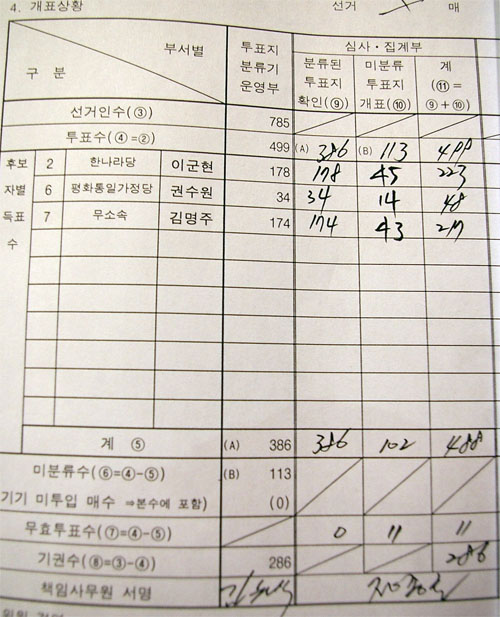 4. 개표상황 선거 매
부서별 구분 투표지 분류기 운영부 심사·집계부
분류된 투표지 확인(⑨) 미분류 투표지 개표(⑩) 계 (⑪= ⑨+⑩)
선거인수(③) 785
투표수(④=②) 499 (A) 386 (B) 113 499
후보자별 득표수 2 한나라당 이군현 178 178 45 223
6 평화통일가정당 권수원 34 34 14 48
7 무소속 김명주 174 174 43 217
계 ⑤ (A) 386 386 102 488
미분류수(⑥=④-⑤) (B) 113
기기 미투입 매수 ⇒본수에 포함) (0)
무효투표수(⑦=④-⑤) 0 11 11
기권수(⑧=③-④) 286 286
책임사무원 서명